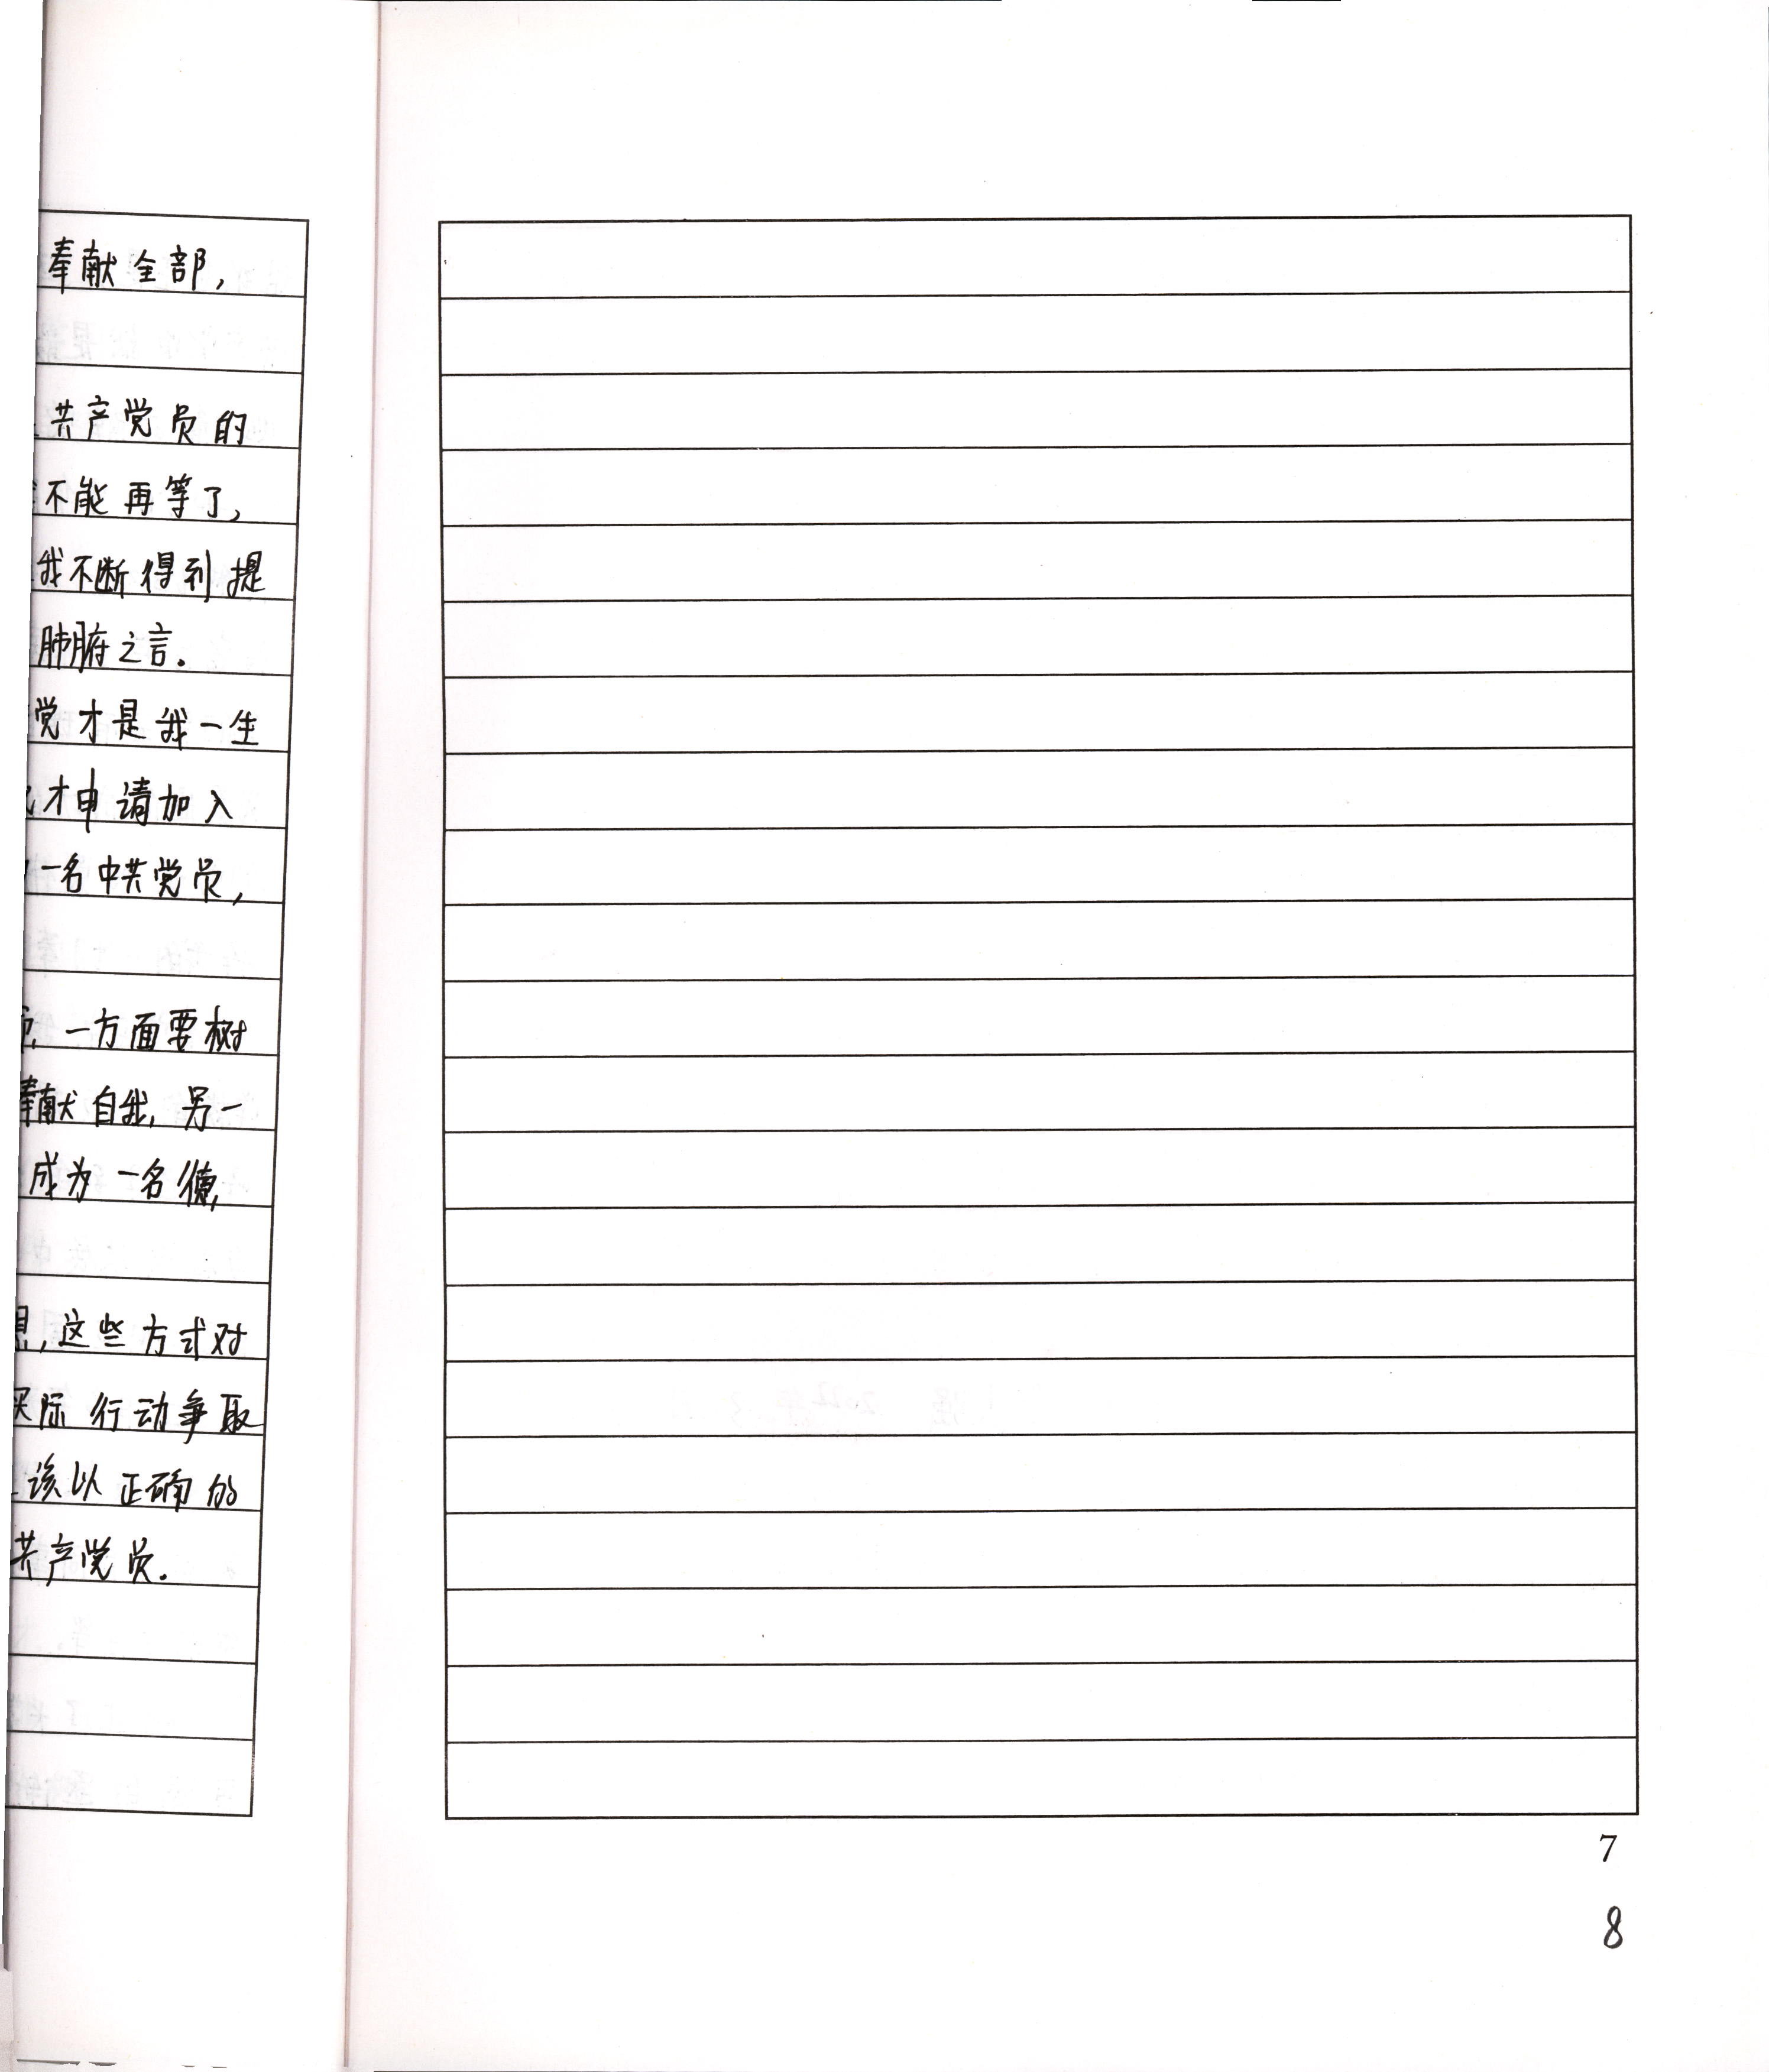 奉献全部,
共产党员的
不能再等了,
我不断得到提
肺腑之言.
党才是我一生
才申请加入
一名中共党员,
一方面要树
奉献自我, 另一
成为一名德,
,这些方式对
实际行动争取
该以正确的
共产党员.
7
8